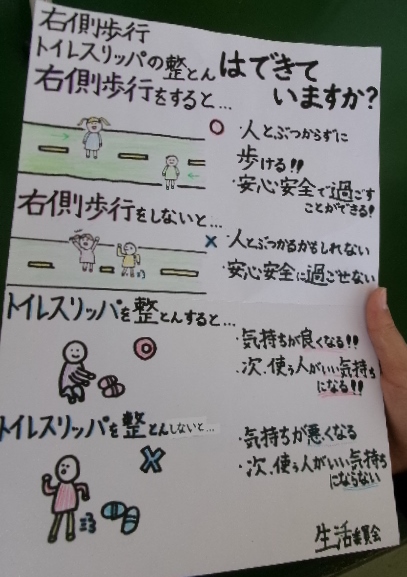 右側歩行
トイレスリッパの整とんはできていますか?
右側歩行をすると…
○ ・人とぶつからずに
歩ける!!
・安心安全で過ごす
ことができる!
右側歩行をしないと…
× ・人とぶつかるかもしれない
・安心安全に過ごせない
トイレスリッパを整とんすると…
・気持ちが良くなる!!
・次、使う人がいい気持ち
になる!!
トイレスリッパを整とんしないと…
・気持ちが悪くなる
・次、使う人がいい気持ち
にならない
生活委員会